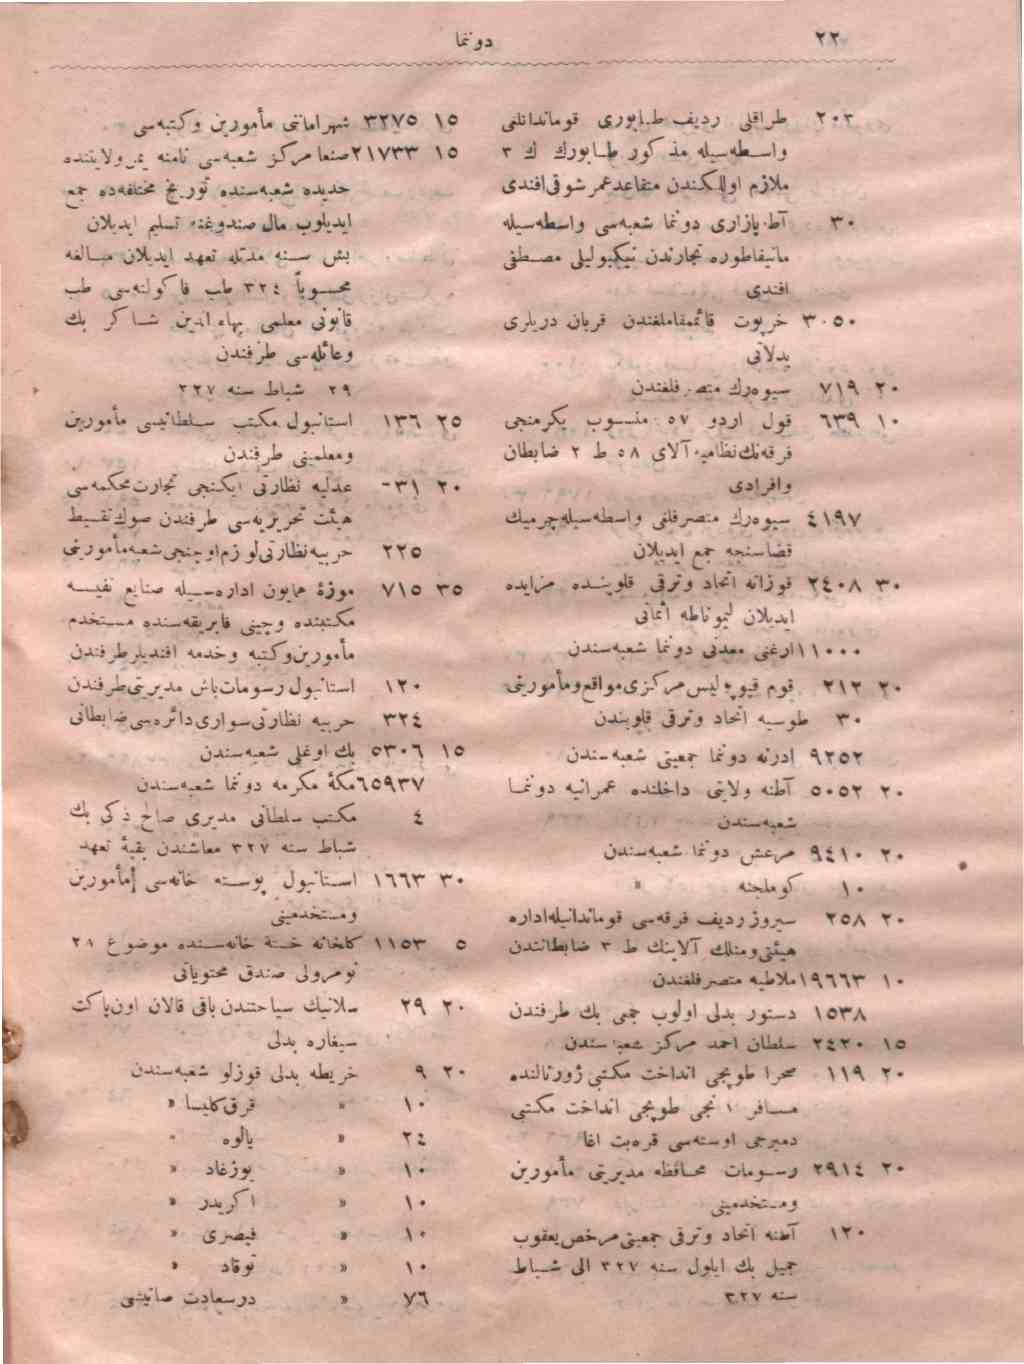 ٢٢
دونما
٢٠٣ طراقلی ردیف طابوری قوماندانلغی
واسطه‌سیله مذکور طابورك ك ٣
ملازم اوللكندن متقاعد عمر شوقی افندی
٣٠ آط پازاری دونما شعبه‌سی واسطه‌سیله
مانیفاطوره تجارندن نیکبولیلی مصطفی
افندی
٣٠٥٠ خرپوت قائممقاملغندن قربان دریلری
بدلاتی
٢٠ ٧١٩ سیوه‌رك متصرفلغندن
١٠ ٦٣٩ قول اردو ٥٧ منسوب یکرمنجی
فرقه‌نك نظامیه آلای ٥٨ ط ٢ ضابطان
وافرادی
٤١٩٧ سیوه‌رك متصرفلغی واسطه‌سیله چرمیك
قضاسنجه جمع ایدیلان
٣٠ ٢٤٠٨ قوزانه اتحاد وترقی قلوبنده مزایده
ایدیلان لیموناطه اثمانی
١١٠٠٠ ارغنی معدنی دونما شعبه‌سندن
٢٠ ٢١٢ قوم قپو پولیس مرکزی مواقع ومأموریتی
٣٠ طوسیه اتحاد وترقی قلوبندن
٩٢٥٢ ادرنه دونما جمعیتی شعبه‌سندن
٢٠ ٥٠٥٢ آطنه ولایتی داخلنده عمرانیه دونما
شعبه‌سندن
٢٠ ٩٤١٠ مرعش دونما شعبه‌سندن
١٠ کوملجنه »
٢٠ ٢٥٨ سیروز ردیف فرقه‌سی قوماندانیله اداره
هیئتی ومنلك آلاینك ط ٣ ضابطانندن
١٠ ١٩٦٦٣ ملاطیه متصرفلغندن
١٥٣٨ دستور بدلی اولوب جمعی بك طرفندن
١٥ ٢٤٢٠ سلطان احمد مرکز شعبه‌سندن
٢٠ ١١٩ صحرا طوپجی انداخت مکتبی ژورنالنده
مسافر ١ نجی طوپجی انداخت مکتبی
دمیرجی اوسته‌سی قره‌بت اغا
٢٠ ٢٩١٤ رسومات محافظه مدیریتی مأمورین
ومستخدمینی
١٢٠ آطنه اتحاد وترقی جمعیتی مرخصی یعقوب
جمیل بك ایلول سنه ٣٢٧ الی شباط
سنه ٣٢٧
١٥ ٣٢٧٥ شهرامانتی مأمورین وکتبه‌سی
١٥ ٢١٧٣٣ صنعا مرکز شعبه‌سی نامنه یمن ولایتنده
حدیده شعبه‌سنده تواریخ مختلفه‌ده جمع
ایدیلوب مال صندوغنه تسلیم ایدیلان
بش سنه مدتله تعهد ایدیلان مبالغه
محسوباً ٣٢٤ طب فاکولته‌سی طب
قانونی معلمی بهاءالدین شاکر بك
وعائله‌سی طرفندن
٢٩ شباط سنه ٣٢٧
٢٥ ١٣٦ استانبول مکتب سلطانیسی مأمورین
ومعلمینی طرفندن
٢٠ ٣١- عدلیه نظارتی ایکنجی تجارت محکمه‌سی
هیئت تحریریه‌سی طرفندن صوك تقسیط
٢٢٥ حربیه نظارتی لوازم اوچنجی شعبه مأمورینی
٣٥ ٧١٥ موزهٔ همایون اداره‌سیله صنایع نفیسه
مکتبنده وچینی فابریقه‌سنده مستخدم
مأمورین وکتبه وخدمه افندیلر طرفندن
١٢٠ استانبول رسومات باش مدیریتی طرفندن
٣٢٤ حربیه نظارتی سواری دائره‌سی ضابطانی
١٥ ٥٣٠٦ بك اوغلی شعبه‌سندن
٦٥٩٣٧ مکهٔ مکرمه دونما شعبه‌سندن
٤ مکتب سلطانی مدیری صالح ذکی بك
شباط سنه ٣٢٧ معاشندن بقیهٔ تعهد
٣٠ ١٦٦٣ استانبول پوسته خانه‌سی مأمورین
ومستخدمینی
٥ ١١٥٣ کلخانه خسته خانه‌سنده موضوع ٢٨
نومرولی صندق محتویاتی
٢٠ ٢٩ سلانیك سیاحتندن باقی قالان اون پاکت
سیغاره بدلی
٢٠ ٩ خریطه بدلی قوزلو شعبه‌سندن
١٠ » قرق کلیسا »
٢٤ » یالوه »
١٠ » یوزغاد »
١٠ » اکریدر »
١٠ » قیصری »
١٠ » توقاد »
٧٦ » درسعادت صاتیشی